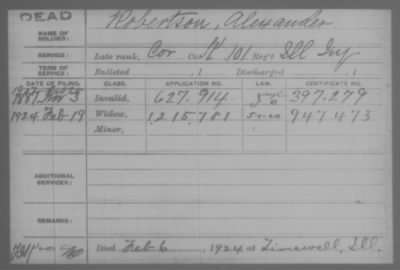 DEAD
NAME OF SOLDIER: Robertson, Alexander
SERVICE: Late rank, Cor Co. H, 101 Reg't Ill Inf
TERM OF SERVICE: Enlisted , 1 Discharged , 1
DATE OF FILING. CLASS. APPLICATION NO. LAW. CERTIFICATE NO.
3 Invalid, 627.914 397.279
1924 Feb 19 Widow, 1215,781 947473
Minor,
ADDITIONAL SERVICES:
REMARKS:
Died Feb 6, 1924 at Timewell, Ill.